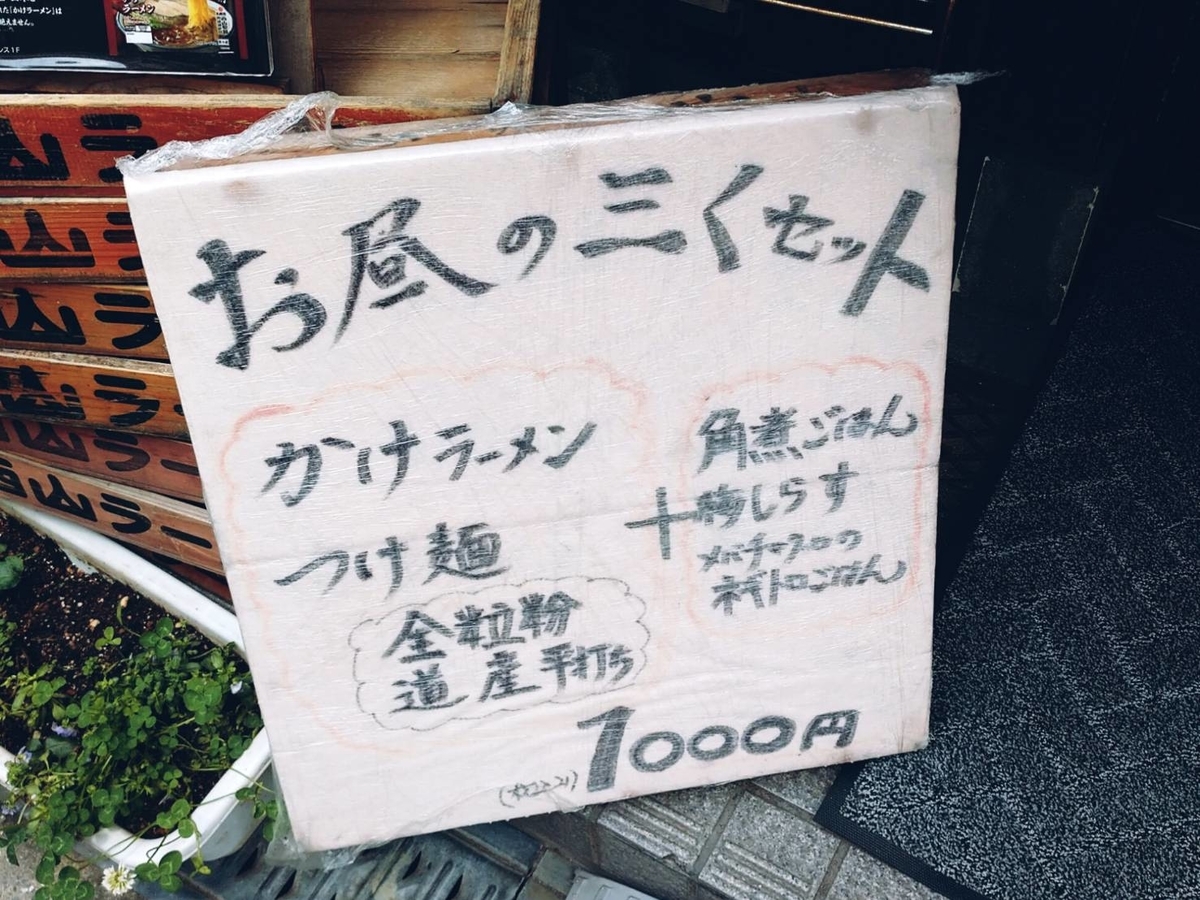 ラーメン
た「かけラーメン」は
絶えません。
ンス1F
山ラ
山ラ
山ラ
ラ
山ラー
山ラー
お昼の三くセット
かけラーメン
つけ麺
全粒粉
道産平打ち
+
角煮ごはん
梅しらす
メバチマグロの
ネギトロごはん
1000円